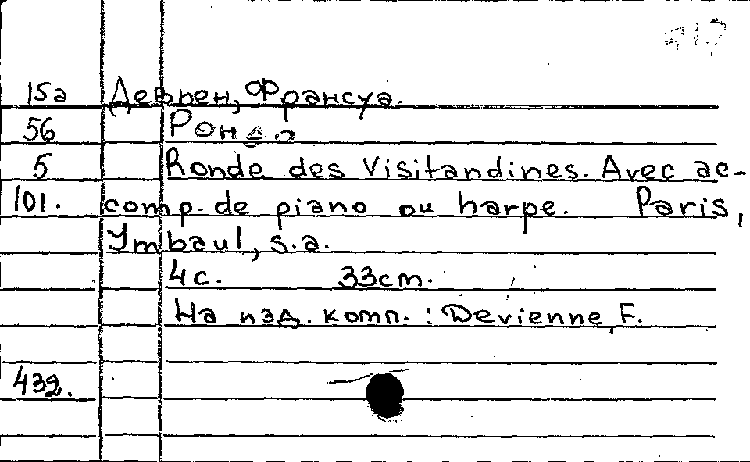 15а Девьен, Франсуа.
56 Рондо
5 Ronde des Visitandines. Avec ac-
101. comp. de piano ou harpe. Paris,
Ymbaul, s.a.
4 c. 33 cm.
На изд. комп.: Devienne, F.
432.